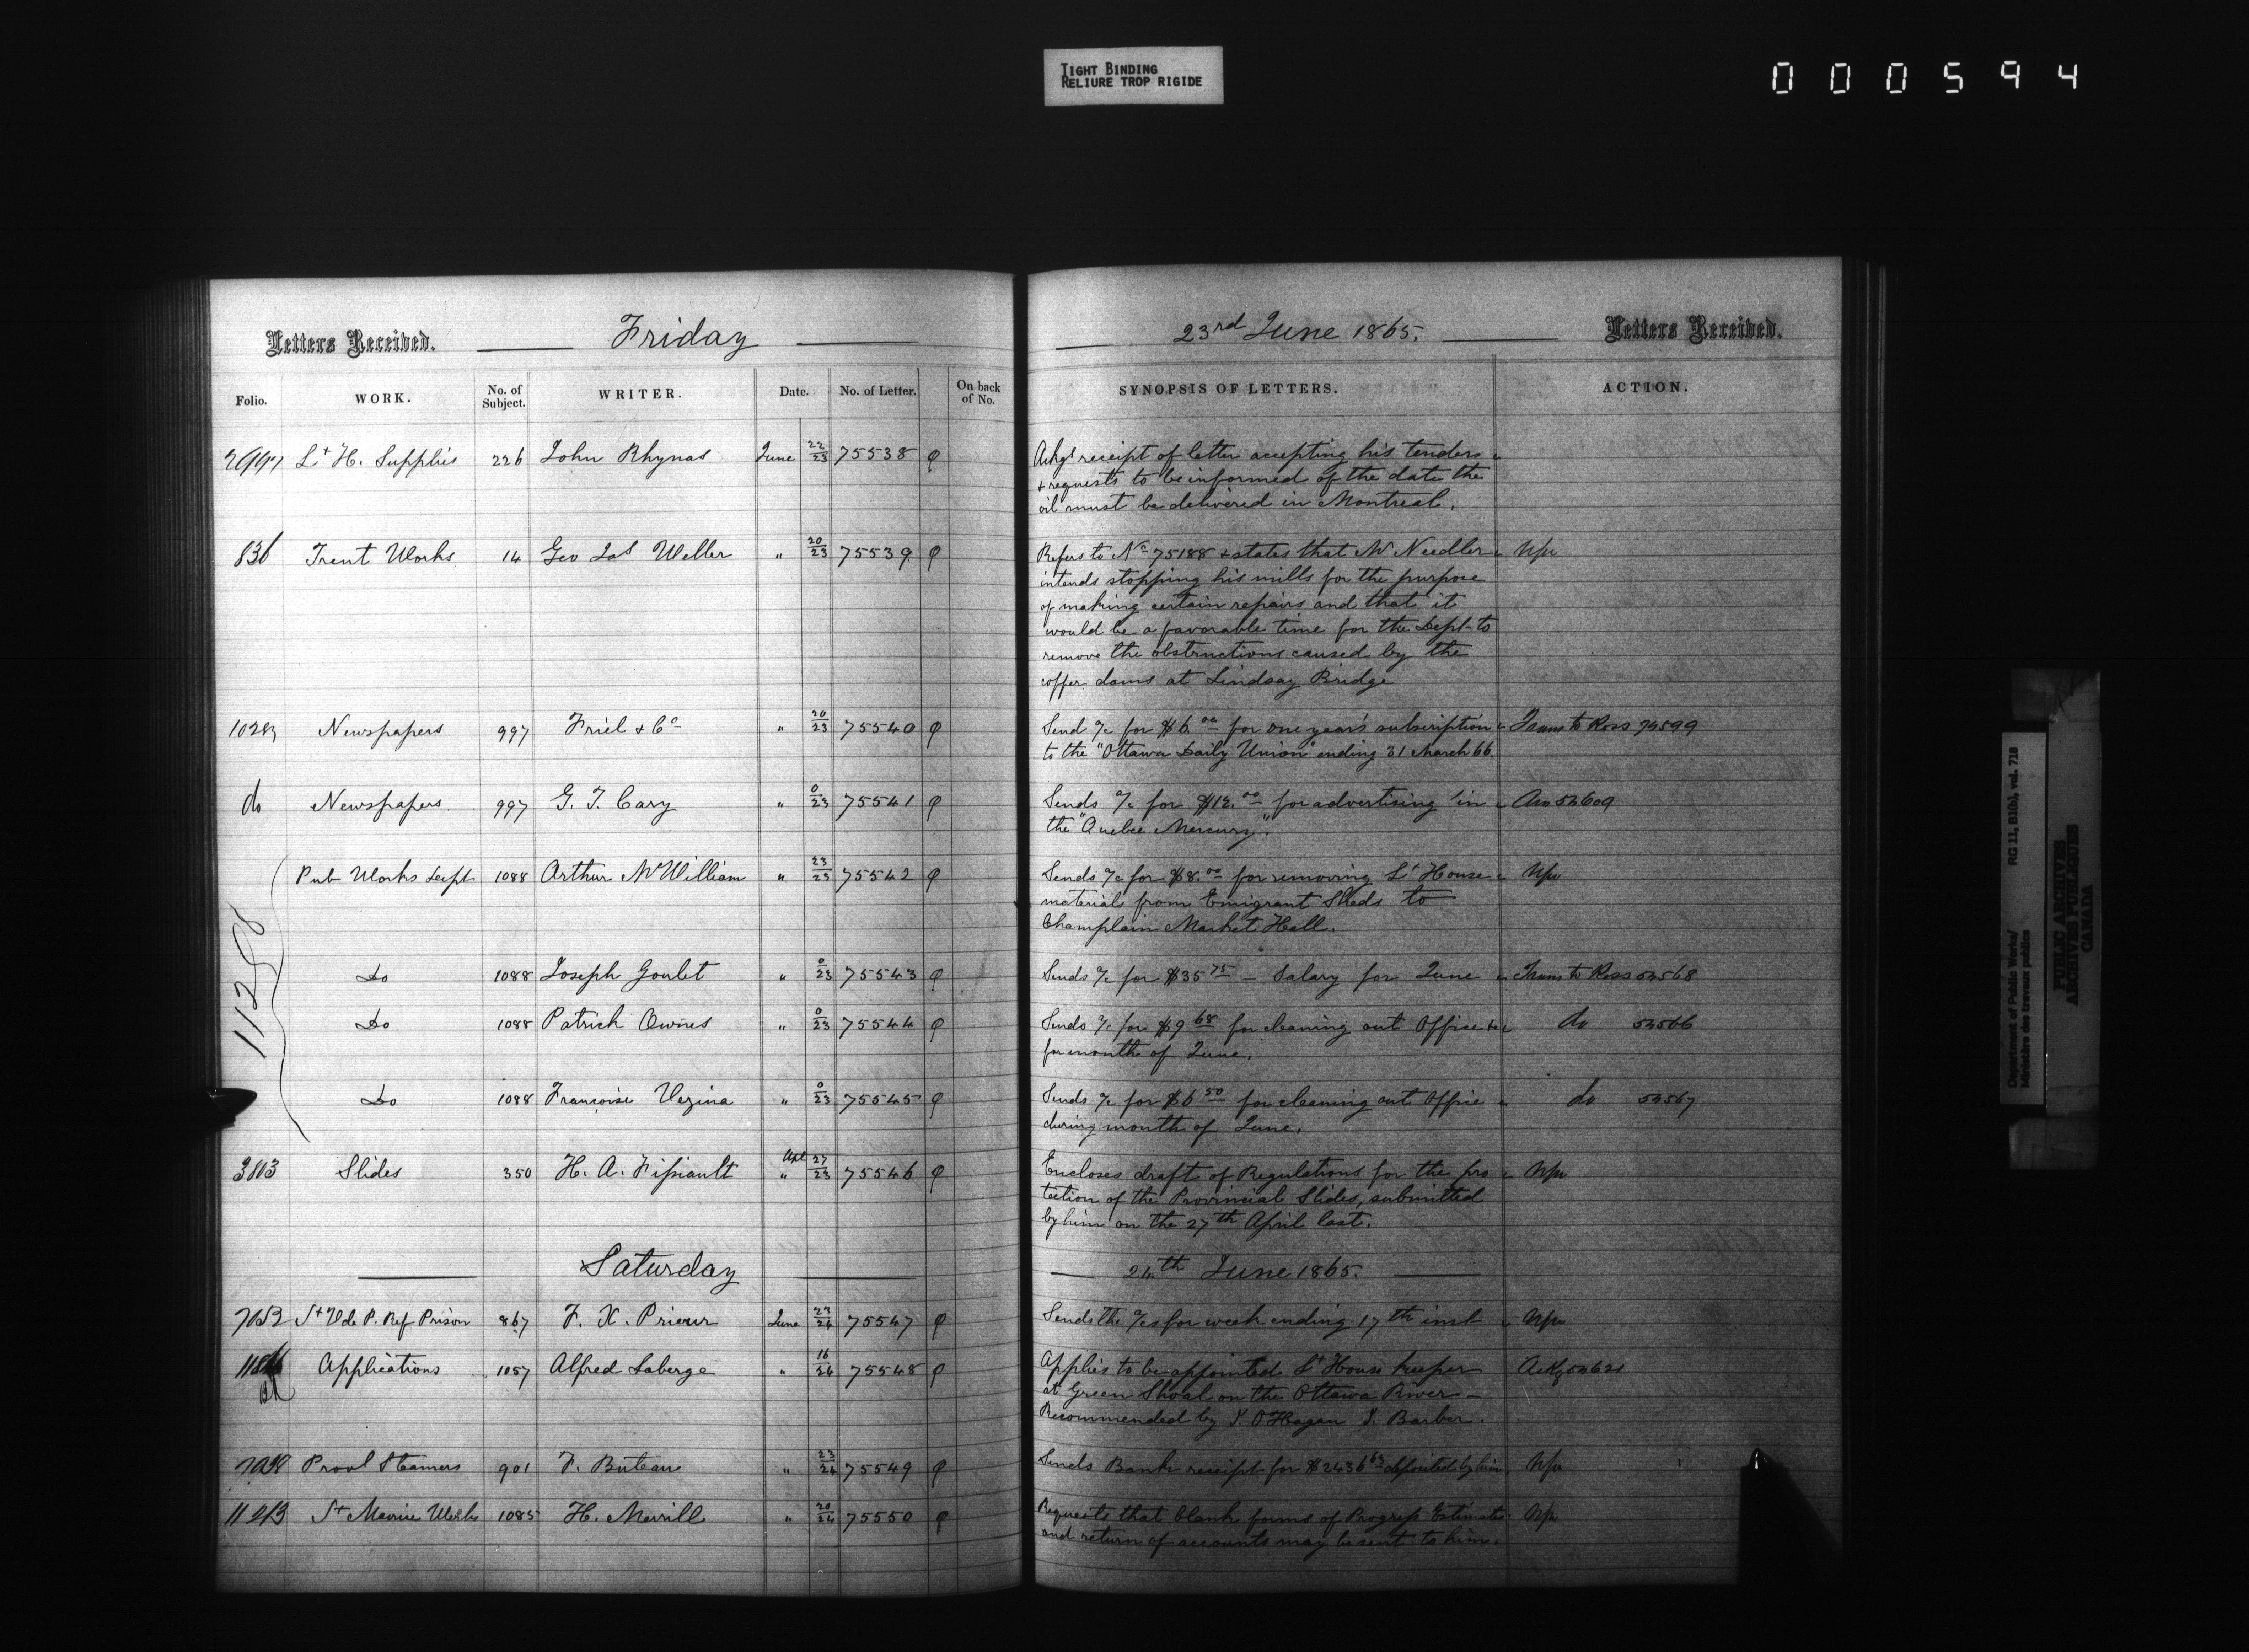 TIGHT BINDING
RELIURE TROP RIGIDE
000594
Letters Received. Friday
Folio. WORK. No. of Subject. WRITER. Date. No. of Letter. On back of No.
Lt H. Supplies 226 John Rhynas June 22/23 75538
836 Trent Works 14 Geo Jas Weller " 20/23 75539
Newspapers 997 Friel & Co " 20/23 75540
do Newspapers 997 G. T. Cary " 0/23 75541
Pub Works Dept 1088 Arthur McWilliam " 23/23 75542
Do 1088 Joseph Goulet " 0/23 75543
Do 1088 Patrick Owens " 0/23 75544
Do 1088 Francoise Vezina " 0/23 75545
Slides 350 H. A. Fissiault Apl " 27/23 75546
Saturday
St V de P. Ref Prison 867 F. X. Prieur June 23/24 75547
Applications 1057 Alfred Laberge " 16/24 75548
Provl Steamers 901 F. Buteau " 23/24 75549
St Maurice Works 1085 H. Merrill " 20/24 75550
23rd June 1865. Letters Received.
SYNOPSIS OF LETTERS. ACTION.
Ackgs receipt of letter accepting his tenders
& requests to be informed of the date the
oil must be delivered in Montreal.
Refers to No 75188 & states that Mr Needler
intends stopping his mills for the purpose
of making certain repairs and that it
would be a favorable time for the Dept to
remove the obstructions caused by the
coffer dams at Lindsay Bridge
Send a/c for $6.00 for one year's subscription Trans to Ross
to the "Ottawa Daily Union" ending 31 March 66.
Sends a/c for $12.00 for advertising in
the "Quebec Mercury".
Sends a/c for $8.00 for removing Lt House
materials from Emigrant Sheds to
Champlain Market Hall.
Sends a/c for $35 75 – Salary for June Trans to Ross 52568
Sends a/c for $9 68 for cleaning out Office &c do 52566
for month of June.
Sends a/c for $6 50 for cleaning out Office do 52567
during month of June.
Encloses draft of Regulations for the pro
tection of the Provincial Slides, submitted
by him on the 27th April last.
24th June 1865.
Sends the a/cs for week ending 17th inst
Applies to be appointed Lt House keeper Ackg 52621
at Green Shoal on the Ottawa River –
Recommended by J. O'Hagan J. Barber.
Sends Bank receipt for $2436 63 deposited by him
Requests that blank forms of Progress Estimates
and return of accounts may be sent to him.
Department of Public Works/ RG 11, B1(b), vol. 718
Ministère des travaux publics
PUBLIC ARCHIVES
ARCHIVES PUBLIQUES
CANADA